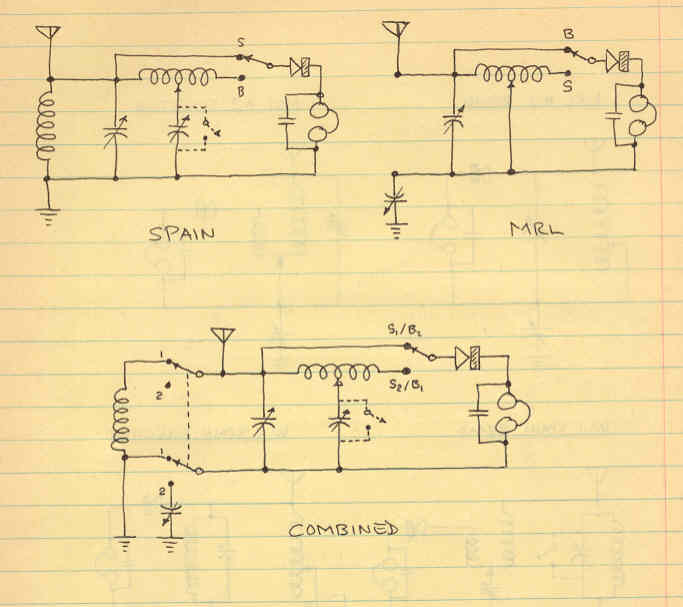 S
B
SPAIN
B
S
MRL
S1/B2
S2/B1
1
2
1
2
COMBINED